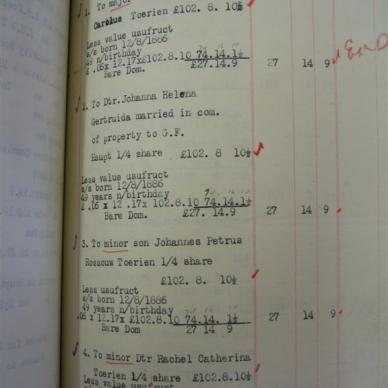 1. To major
Carolus Toerien £102. 8. 10½
Less value usufruct
s/s born 12/8/1886
49 n/birthday
£ .06 x 12.17x£102.8.10 74.14.1½
Bare Dom. £27.14.9 27 14 9
E&O
2. To Dtr. Johanna Helena
Gertruida married in com.
of property to G.F.
Haupt 1/4 share £102. 8 10½
Less value usufruct
s/s born 12/8/1886
49 years n/birthday
£ .06 x 12 .17x 102.8.10 74.14.1½
Bare Dom. £27. 14.9 27 14 9
3. To minor son Johannes Petrus
Rossouw Toerien 1/4 share
£102. 8. 10½
Less usufruct
s/s born 12/8/1886
49 years n/birthday
.06 x 12.17x £102.8.10 74. 14. 1½
Bare Dom 27 14 9 27 14 9
4. To minor Dtr Rachel Catherina
Toerien 1/4 share £102.8.10½
Less value usufruct